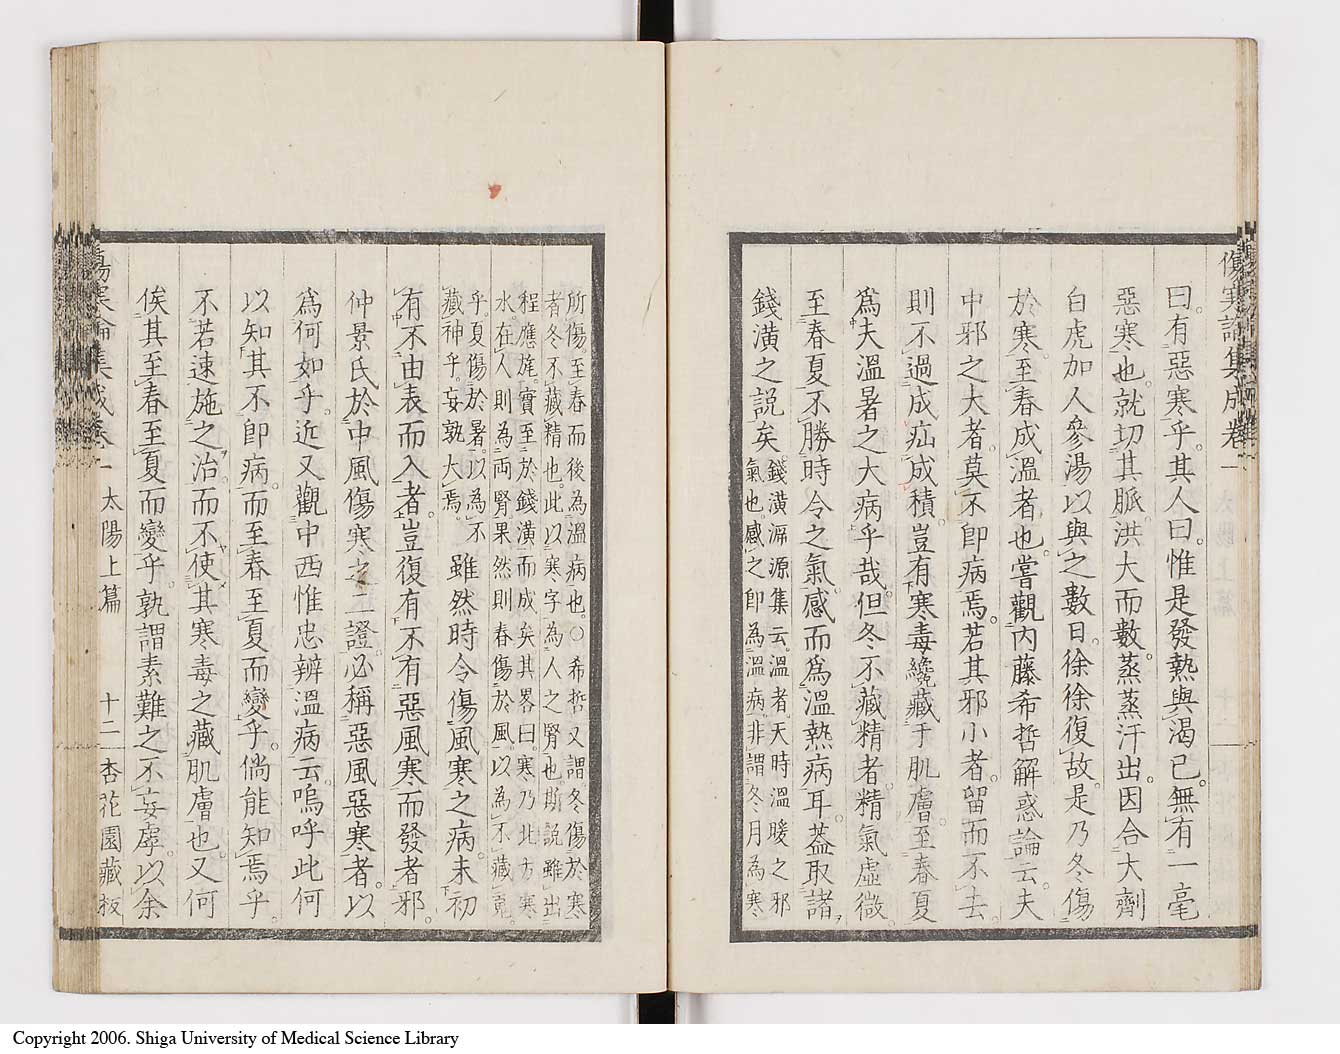 傷寒論集成卷一
曰。有惡寒乎。其人曰。惟是發熱與渴已。無有一毫
惡寒也。就切其脈洪大而數。蒸蒸汗出。因合大劑
白虎加人參湯以與之。數日。徐徐復故。是乃冬傷
於寒。至春成溫者也。嘗觀內藤希哲解惑論云。夫
中邪之大者。莫不卽病焉。若其邪小者。留而不去。
則不過成疝成積。豈有寒毒纔藏于肌膚。至春夏
爲夫溫暑之大病乎哉。但冬不藏精者。精氣虛微
至春夏不勝時令之氣。感而爲溫熱病耳。蓋取諸
錢潢之說矣。
錢潢溯源集云。溫者。天時溫暖之邪
氣也。感之卽為溫病。非謂冬月為寒
所傷。至春而後為溫病也。○希哲又謂冬傷於寒
者。冬不藏精也。此以寒字為人之腎也。斯說雖出
程應旄。實至於錢潢而成矣。其畧曰。寒乃北方寒
水。在人則為兩腎。果然則春傷於風。以為不藏䰟
乎。夏傷於暑。以為不
藏神乎。妄孰大焉。
雖然時令傷風寒之病。未初
有不由表而入者。豈復有不有惡風寒而發者邪。
仲景氏於中風傷寒之二證。必稱惡風惡寒者。以
爲何如乎。近又觀中西惟忠辨溫病云。嗚呼此何
以知其不卽病。而至春至夏而變乎。倘能知焉乎。
不若速施之治。而不使其寒毒之藏肌膚也。又何
俟其至春至夏而變乎。孰謂素難之不妄虖。以余
傷寒論集成卷一 太陽上篇 十二 杏花園藏板
Copyright 2006. Shiga University of Medical Science Library